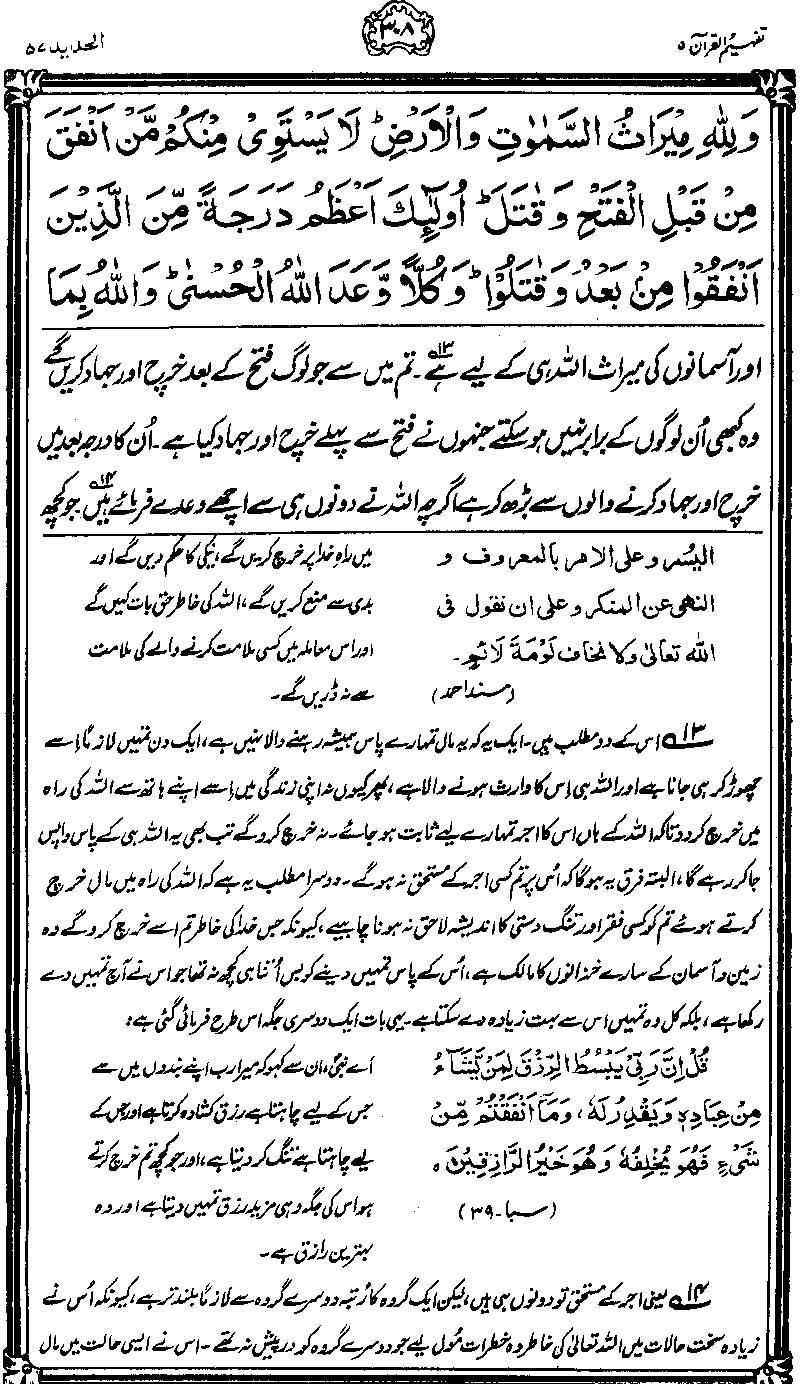 تفہیم القرآن ۵
۳۰۸
الحدید ۵۷
وَلِلّٰهِ مِيْرَاثُ السَّمٰوٰتِ وَالْاَرْضِ ؕ لَا يَسْتَوِىْ مِنْكُمْ مَّنْ اَنْفَقَ
مِنْ قَبْلِ الْفَتْحِ وَقٰتَلَ ؕ اُولٰٓئِكَ اَعْظَمُ دَرَجَةً مِّنَ الَّذِيْنَ
اَنْفَقُوْا مِنْۢ بَعْدُ وَقٰتَلُوْا ؕ وَكُلًّا وَّعَدَ اللّٰهُ الْحُسْنٰى ؕ وَاللّٰهُ بِمَا
اور آسمانوں کی میراث اللہ ہی کے لیے ہے ۱۳۔ تم میں سے جو لوگ فتح کے بعد خرچ اور جہاد کریں گے
وہ کبھی اُن لوگوں کے برابر نہیں ہو سکتے جنہوں نے فتح سے پہلے خرچ اور جہاد کیا ہے۔ اُن کا درجہ بعد میں
خرچ اور جہاد کرنے والوں سے بڑھ کر ہے اگرچہ اللہ نے دونوں ہی سے اچھے وعدے فرمائے ہیں ۱۴ جو کچھ
الیُسر وعلی الامر بالمعروف و
النهی عن المنکر وعلی ان نقول فی
الله تعالیٰ ولا نخاف لَوْمَةَ لَائِمٍ۔
(مسند احمد)
میں راہِ خدا پر خرچ کریں گے، نیکی کا حکم دیں گے اور
بدی سے منع کریں گے، اللہ کی خاطر حق بات کہیں گے
اور اس معاملہ میں کسی ملامت کرنے والے کی ملامت
سے نہ ڈریں گے۔
۱۳ اس کے دو مطلب ہیں۔ ایک یہ کہ یہ مال تمہارے پاس ہمیشہ رہنے والا نہیں ہے، ایک دن تمہیں لازماً اِسے
چھوڑ کر ہی جانا ہے اور اللہ ہی اِس کا وارث ہونے والا ہے، پھر کیوں نہ اپنی زندگی میں اِسے اپنے ہاتھ سے اللہ کی راہ
میں خرچ کر دو تاکہ اللہ کے ہاں اس کا اجر تمہارے لیے ثابت ہو جائے۔ نہ خرچ کرو گے تب بھی یہ اللہ ہی کے پاس واپس
جا کر رہے گا، البتہ فرق یہ ہو گا کہ اُس پر تم کسی اجر کے مستحق نہ ہو گے۔ دوسرا مطلب یہ ہے کہ اللہ کی راہ میں مال خرچ
کرتے ہوئے تم کو کسی فقر اور تنگ دستی کا اندیشہ لاحق نہ ہونا چاہیے، کیونکہ جس خدا کی خاطر تم اسے خرچ کرو گے وہ
زمین و آسمان کے سارے خزانوں کا مالک ہے، اُس کے پاس تمہیں دینے کو بس اُتنا ہی کچھ نہ تھا جو اس نے آج تمہیں دے
رکھا ہے، بلکہ کل وہ تمہیں اس سے بہت زیادہ دے سکتا ہے۔ یہی بات ایک دوسری جگہ اس طرح فرمائی گئی ہے:
قُلْ اِنَّ رَبِّيْ يَبْسُطُ الرِّزْقَ لِمَنْ يَّشَآءُ
مِنْ عِبَادِهٖ وَيَقْدِرُ لَهٗ، وَمَآ اَنْفَقْتُمْ مِّنْ
شَيْءٍ فَهُوَ يُخْلِفُهٗ وَهُوَ خَيْرُ الرَّازِقِيْنَ ہ
(سبا۔۳۹)
اَے نبیؐ، ان سے کہو کہ میرا رب اپنے بندوں میں سے
جس کے لیے چاہتا ہے رزق کشادہ کرتا ہے اور جس کے
لیے چاہتا ہے تنگ کر دیتا ہے، اور جو کچھ تم خرچ کرتے
ہو اس کی جگہ وہی مزید رزق تمہیں دیتا ہے اور وہ
بہترین رازق ہے۔
۱۴ یعنی اجر کے مستحق تو دونوں ہی ہیں، لیکن ایک گروہ کا رُتبہ دوسرے گروہ سے لازماً بلند تر ہے، کیونکہ اُس نے
زیادہ سخت حالات میں اللہ تعالیٰ کی خاطر وہ خطرات مُول لیے جو دوسرے گروہ کو درپیش نہ تھے۔ اس نے ایسی حالت میں مال